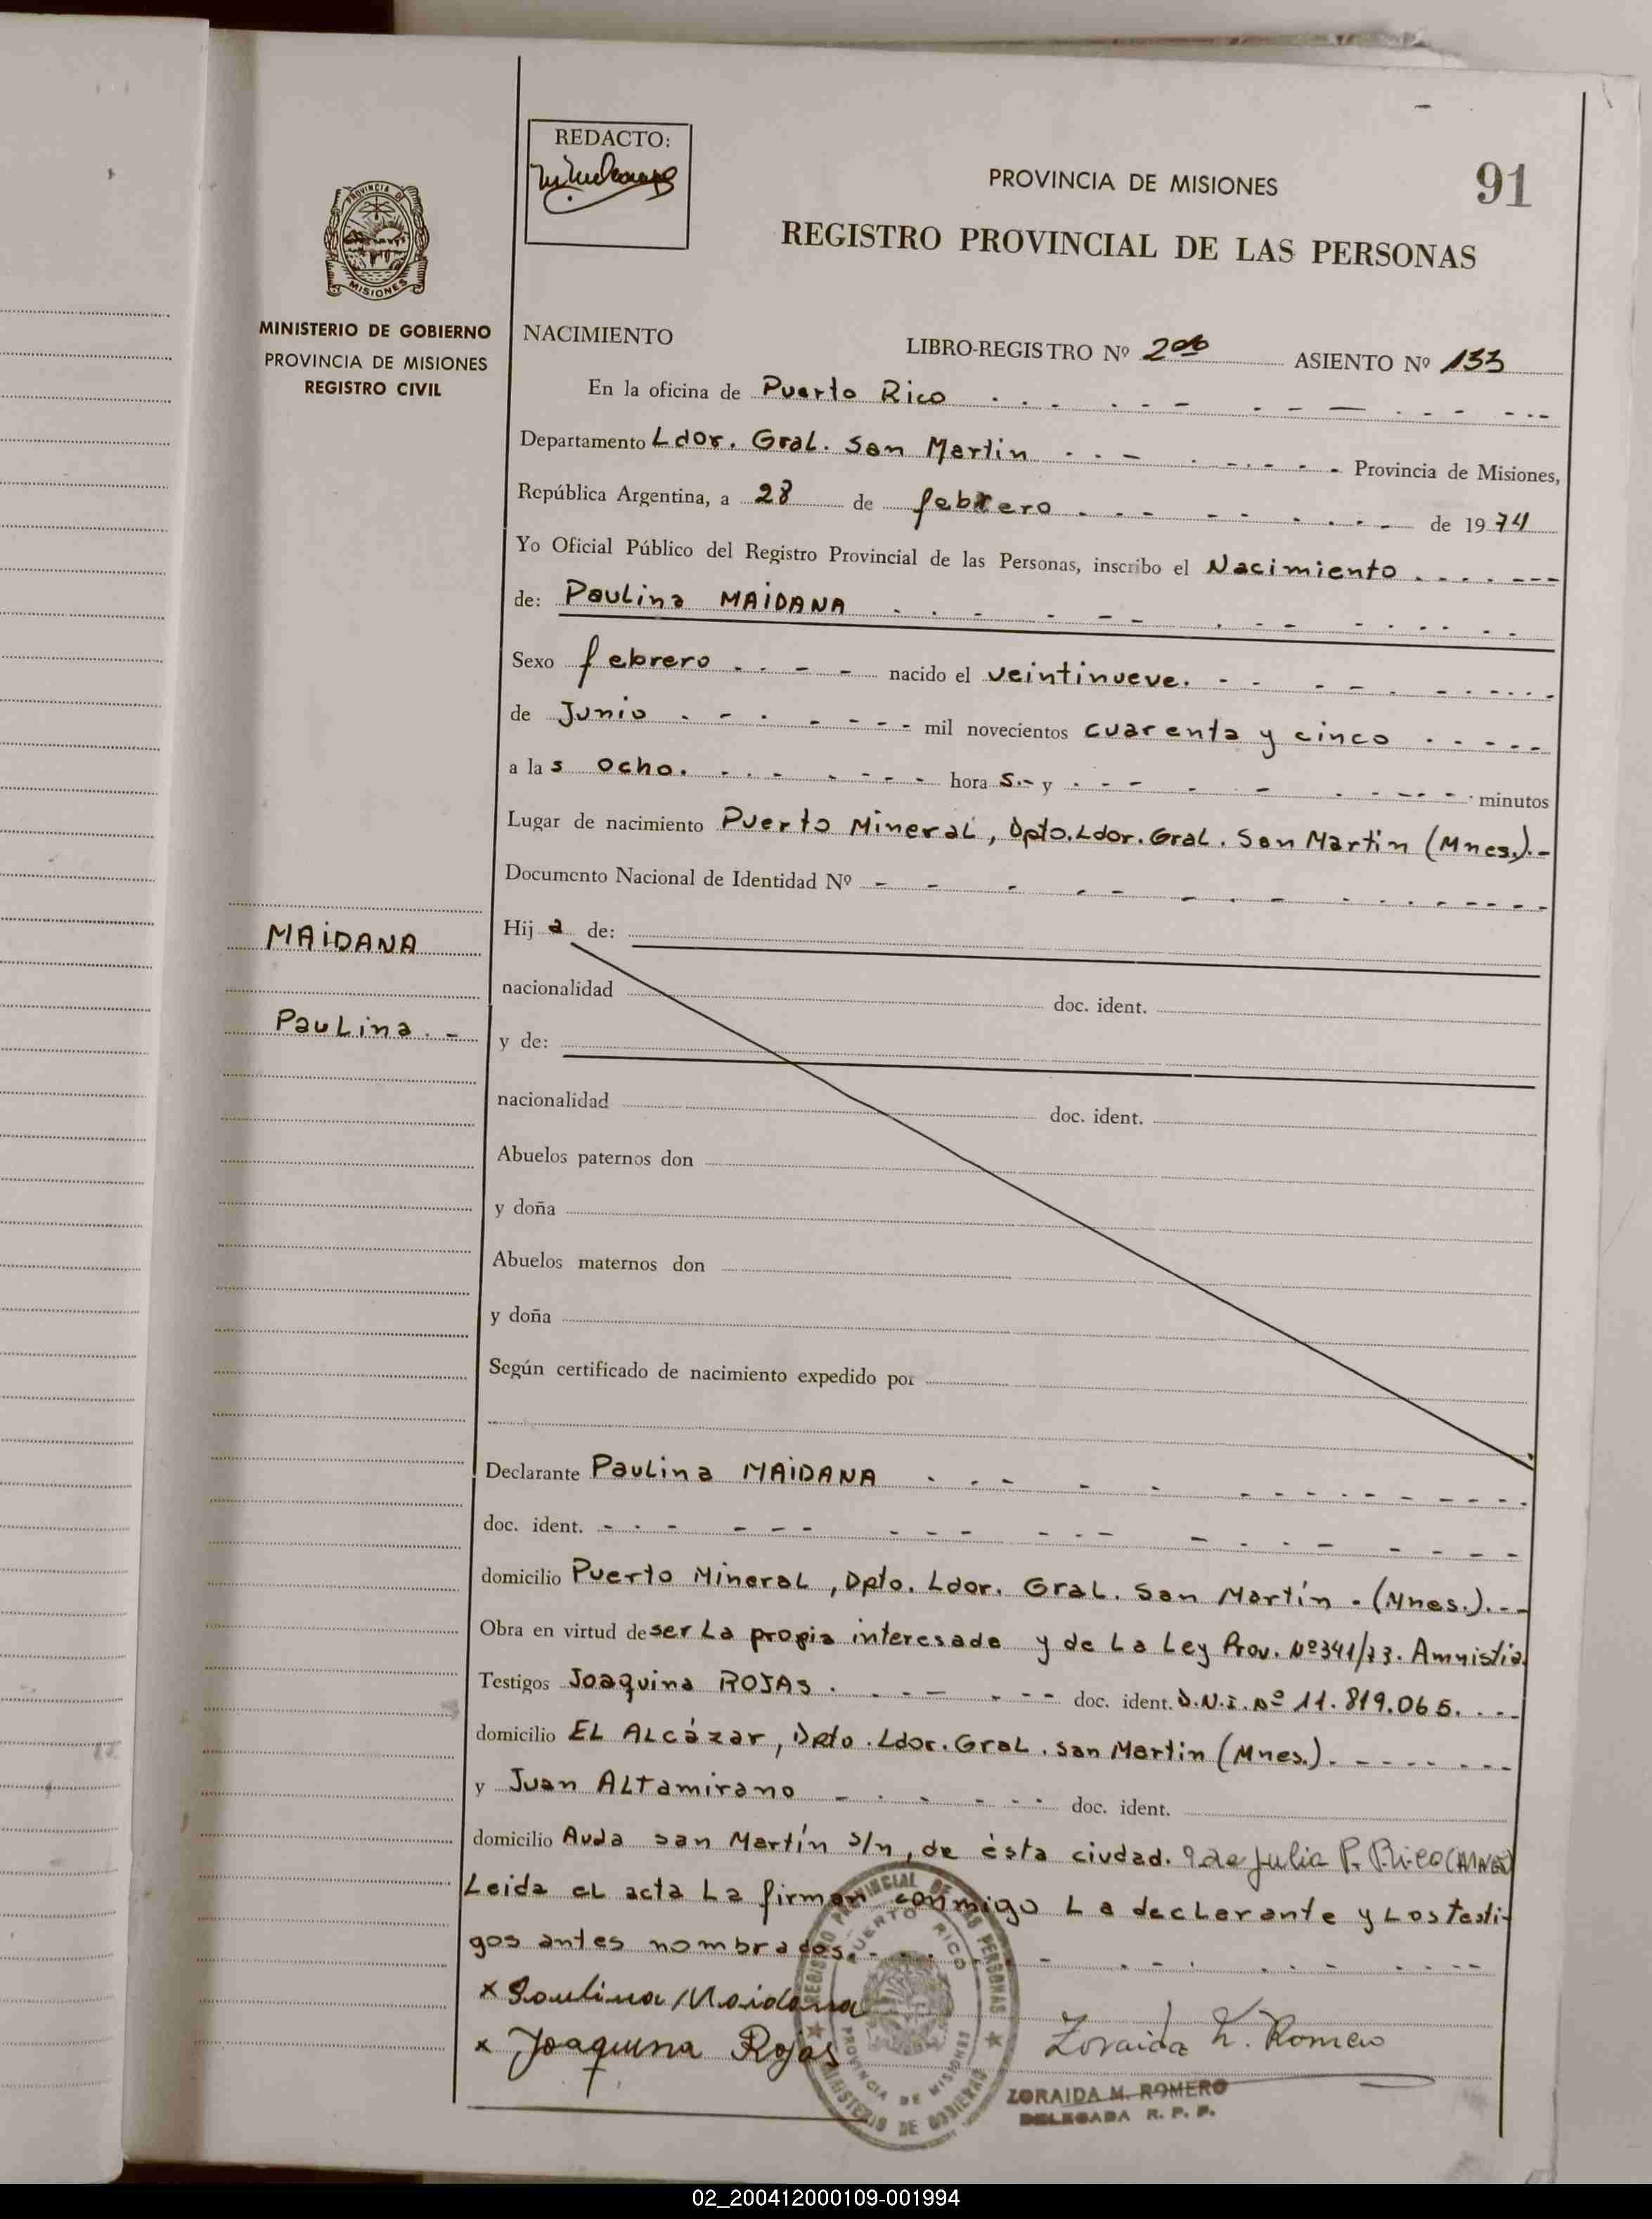 REDACTO:
PROVINCIA DE MISIONES
91
REGISTRO PROVINCIAL DE LAS PERSONAS
PROVINCIA DE
MISIONES
MINISTERIO DE GOBIERNO
PROVINCIA DE MISIONES
REGISTRO CIVIL
NACIMIENTO LIBRO-REGISTRO Nº 2do ASIENTO Nº 133
En la oficina de Puerto Rico
Departamento Ldor. Gral. San Martin Provincia de Misiones,
República Argentina, a 28 de febrero de 1974
Yo Oficial Público del Registro Provincial de las Personas, inscribo el Nacimiento
de: Paulina MAIDANA
Sexo febrero nacido el veintinueve.
de Junio mil novecientos cuarenta y cinco
a las ocho. horas.- y minutos
Lugar de nacimiento Puerto Mineral, Dpto. Ldor. Gral. San Martin (Mnes.).-
Documento Nacional de Identidad Nº
MAIDANA
Paulina.-
Hija de:
nacionalidad doc. ident.
y de:
nacionalidad doc. ident.
Abuelos paternos don
y doña
Abuelos maternos don
y doña
Según certificado de nacimiento expedido por
Declarante Paulina MAIDANA
doc. ident.
domicilio Puerto Mineral, Dpto. Ldor. Gral. San Martín - (Mnes.).--
Obra en virtud de ser La propia interesada y de La Ley Prov. Nº 341/73. Amnistia.
Testigos Joaquina ROJAS. doc. ident. D.N.I. Nº 11.819.065.
domicilio EL ALcázar, Dpto. Ldor. Gral. San Martin (Mnes.).
y Juan ALtamirano doc. ident.
domicilio Avda San Martín s/n, de ésta ciudad. 9 de Julio P. Rico (MNES)
Leida eL acta La firman conmigo La decLarante y Los testi-
gos antes nombrados.
x Paulina Maidana
x Joaquina Rojas
Zoraida M. Romero
ZORAIDA M. ROMERO
DELEGADA R. P. P.
REGISTRO PROVINCIAL DE LAS PERSONAS
PUERTO RICO
PROVINCIA DE MISIONES
MINISTERIO DE GOBIERNO
02_200412000109-001994